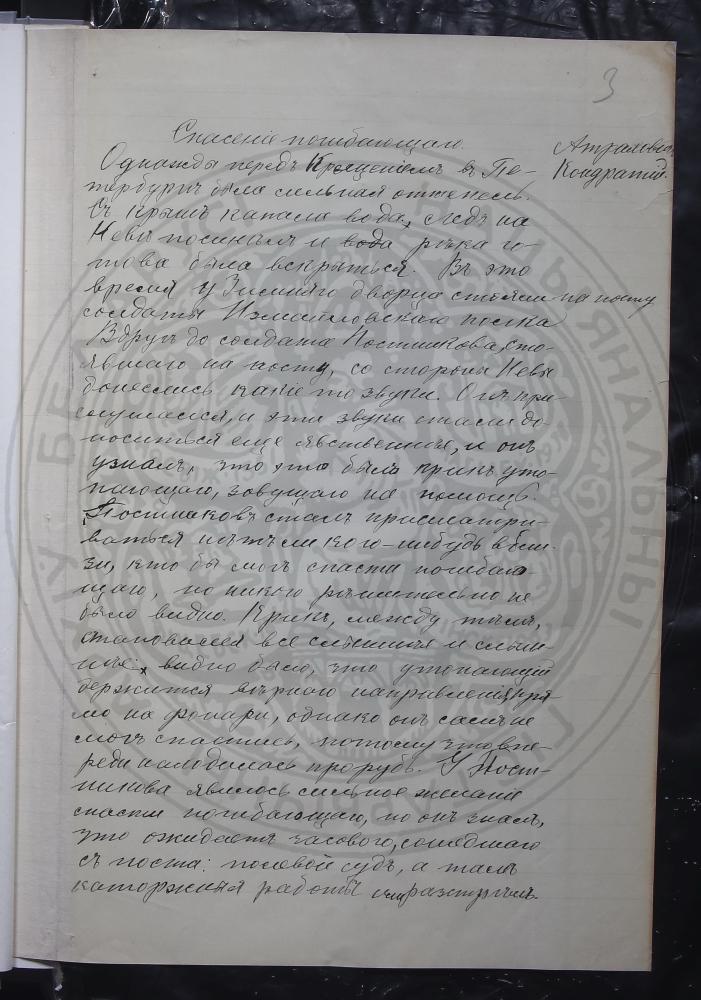 3
Спасеніе погибающаго.
Кондратій.
Однажды передъ Крещеніемъ въ Пе-
тербургѣ была сильная оттепель.
Съ крышъ капала вода, ледъ на
Невѣ посинѣлъ и вода рѣка го-
това была вскрыться. Въ это
время у Зимняго дворца стояли на посту
солдаты Измайловскаго полка
Вдругъ до солдата Постникова, сто-
явшаго на посту, со стороны Невы
донеслись какіе то звуки. Онъ при-
слушался, и эти звуки стали до-
носиться еще явственнѣе, и онъ
узналъ, что это былъ крикъ уто-
пающаго, зовущаго на помощь.
Постниковъ сталъ присматри-
ваться нѣтъ ли кого-нибудь вбли-
зи, кто бы могъ спасти погибаю-
щаго, но никого рѣшительно не
было видно. Крикъ, между тѣмъ,
становился все слышнѣе и слыш-
нѣе, видно было, что утопающій
держится вѣрного направленія, пря-
мо на фонари, однако онъ самъ не
могъ спастись, потому что впе-
реди находилась прорубь. У Пост-
никова явилось сильное желаніе
спасти погибающаго, но онъ зналъ,
что ожидаетъ часового, сошедшаго
съ поста: полевой судъ, а тамъ
каторжныя работы или разстрѣлъ.